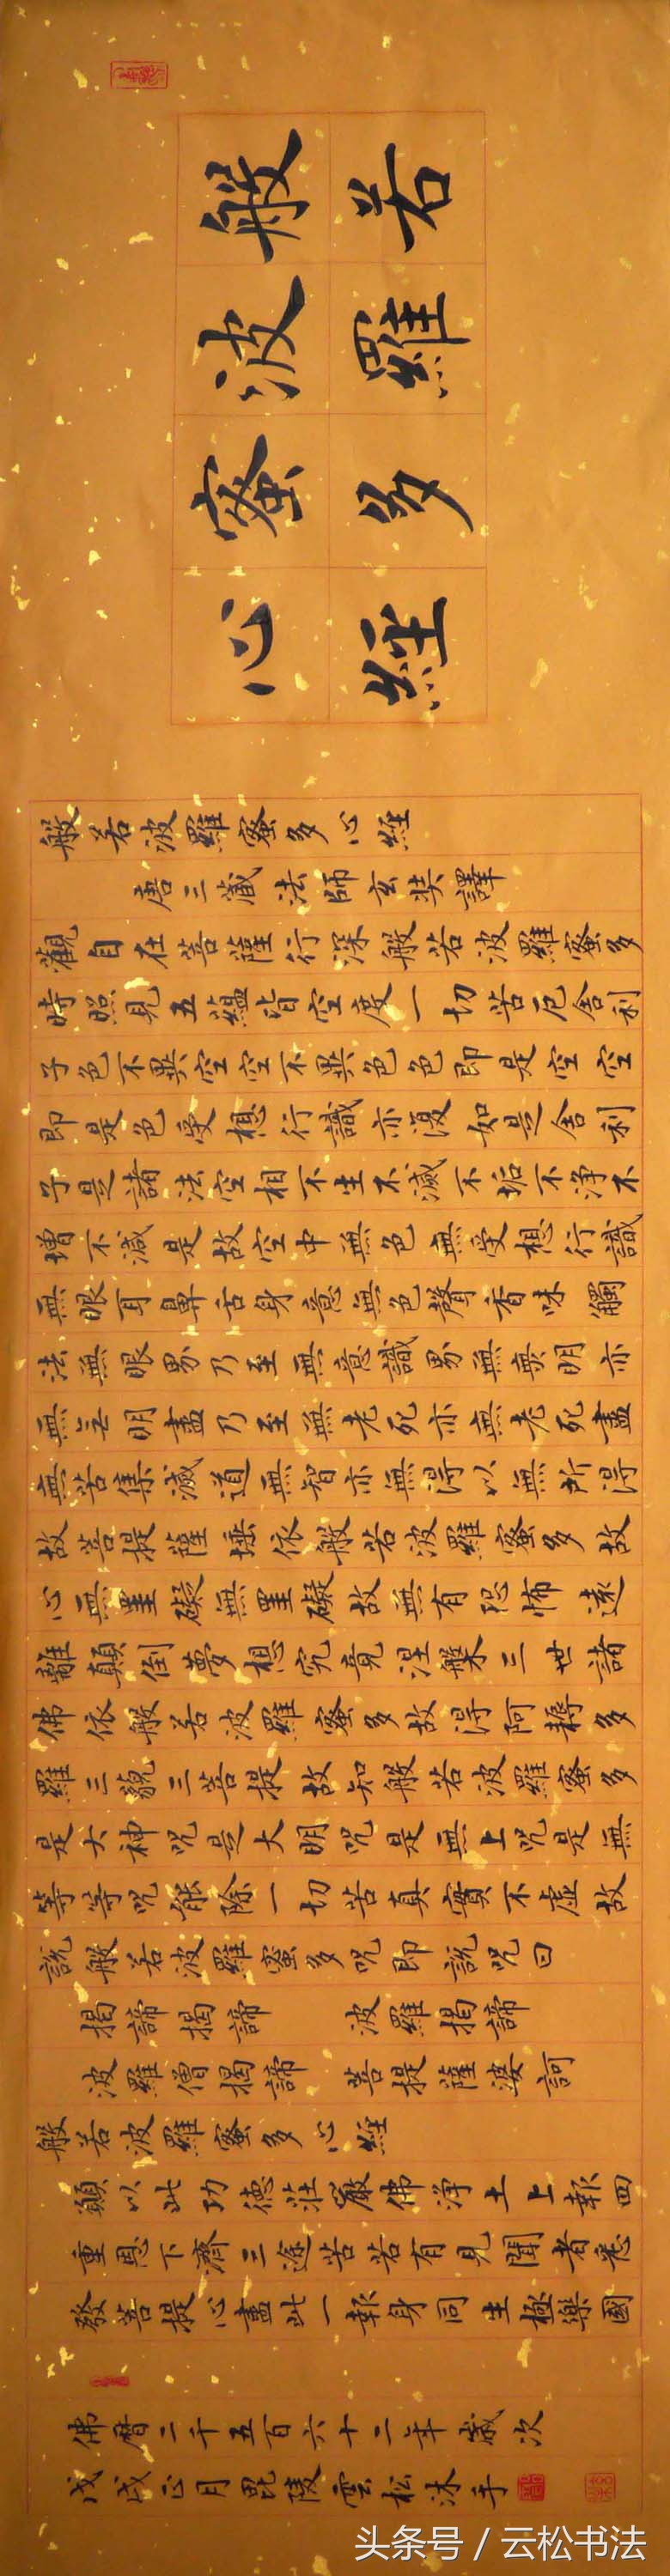 般若
波羅
蜜多
心經
般若波羅蜜多心經
唐三藏法師玄奘譯
觀自在菩薩行深般若波羅蜜多
時照見五蘊皆空度一切苦厄舍利
子色不異空空不異色色即是空空
即是色受想行識亦復如是舍利
子是諸法空相不生不滅不垢不淨不
增不減是故空中無色無受想行識
無眼耳鼻舌身意無色聲香味觸
法無眼界乃至無意識界無無明亦
無无明盡乃至無老死亦無老死盡
無苦集滅道無智亦無得以無所得
故菩提薩埵依般若波羅蜜多故
心無罣礙無罣礙故無有恐怖遠
離顛倒夢想究竟涅槃三世諸
佛依般若波羅蜜多故得阿耨多
羅三藐三菩提故知般若波羅蜜多
是大神咒是大明咒是無上咒是無
等等咒能除一切苦真實不虛故
說般若波羅蜜多咒即說咒曰
揭諦揭諦 波羅揭諦
波羅僧揭諦 菩提薩婆訶
般若波羅蜜多心經
願以此功德莊嚴佛淨土上報四
重恩下濟三途苦若有見聞者悉
發菩提心盡此一報身同生極樂國
佛曆二千五百六十二年歲次
戊戌正月毗陵雲松沐手
头条号 / 云松书法